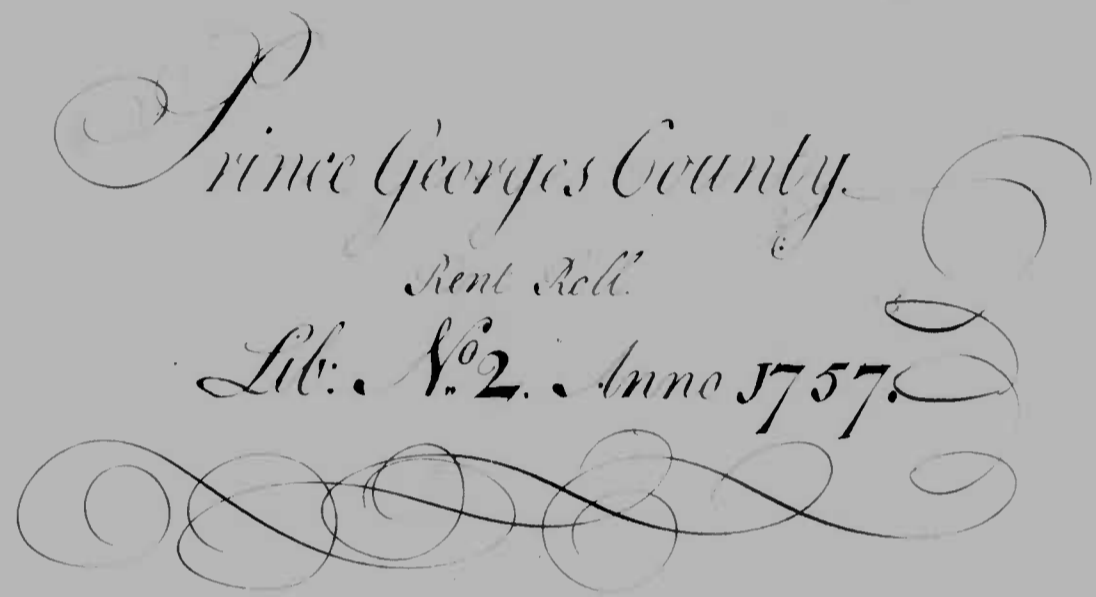 Prince Georges County.
Rent Roll.
Lib: No. 2. Anno 1757.